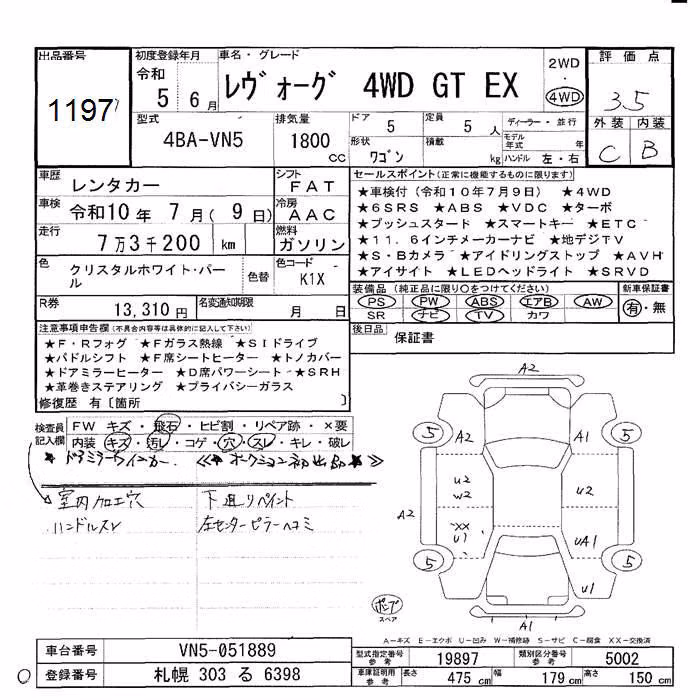 出品番号
1197
初度登録年月
令和
5 6月
車名・グレード
レヴォーグ 4WD GT EX
2WD
・
4WD
評価点
3.5
外装 内装
C B
型式
4BA-VN5
排気量
1800
cc
ドア
5
定員
5 人
形状
ワゴン
積載
kg
ディーラー・並行
モデル年式 年
ハンドル 左・右
車歴
レンタカー
シフト
FAT
車検
令和10年 7月(9日)
冷房
AAC
走行
7万3千200 km
燃料
ガソリン
色
クリスタルホワイト・パール
色替
色コード
K1X
R券
13,310円
名変通知期限
月 日
セールスポイント(正常に機能するものに限ります)
★車検付(令和10年7月9日) ★4WD
★6SRS ★ABS ★VDC ★ターボ
★プッシュスタート ★スマートキー ★ETC
★11.6インチメーカーナビ ★地デジTV
★S・Bカメラ ★アイドリングストップ ★AVH
★アイサイト ★LEDヘッドライト ★SRVD
装備品(純正品に限り○をつけてください)
PS PW ABS エアB AW
SR ナビ TV カワ
新車保証書
有・無
後日品
保証書
注意事項申告欄(不具合内容等は具体的に記入して下さい)
★F・Rフォグ ★Fガラス熱線 ★SIドライブ
★パドルシフト ★F席シートヒーター ★トノカバー
★ドアミラーヒーター ★D席パワーシート ★SRH
★革巻きステアリング ★プライバシーガラス
修復歴 有〔箇所 〕
検査員記入欄
FW キズ・飛石・ヒビ割・リペア跡・×要
内装 キズ・汚レ・コゲ・穴・スレ・キレ・破レ
★ドアミラーウィンカー ≪★オークション初出品★≫
室内加工穴
ハンドルスレ
下廻りペイント
左センターピラーヘコミ
A2
5
A2
A1
5
U2
W2
U2
A2
XX
U1
UA1
5
5
U1
スペア
A1
A-キズ E-エクボ U-凹ミ W-補修跡 S-サビ C-腐食 XX-交換済
車台番号
VN5-051889
登録番号
札幌 303 る 6398
型式指定番号 参考
19897
類別区分番号 参考
5002
車庫証明用 参考
長さ 475 cm
幅 179 cm
高さ 150 cm